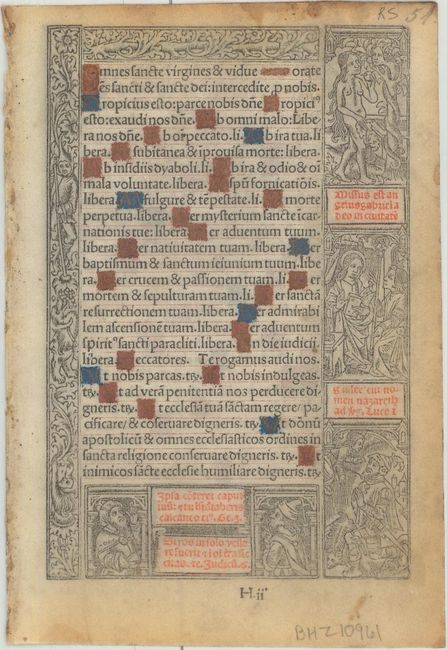 RS 51
Omnes sancte virgines & vidue orate
Oẽs sancti & sancte dei: intercedite ꝓ nobis.
Propicius esto: parce nobis dñe Propici⁹
esto: exaudi nos dñe. Ab omni malo: Libe
ra nos dñe. Ab oĩ peccato. li. Ab ira tua. li
bera. A subitanea & ĩprouisa morte: libera.
Ab insidiis dyaboli. li. Ab ira & odio & oĩ
mala voluntate. libera. A spũ fornicatiõis.
libera. A fulgure & tẽpestate. li. A morte
perpetua. libera. Per mysterium sancte ĩcar
nationis tue: libera. Per aduentum tuum.
libera. Per natiuitatem tuam. libera. Per
baptismum & sanctum ieiunium tuum. libe
ra. Per crucem & passionem tuam. li. Per
mortem & sepulturam tuam. li. Per sanctã
resurrectionem tuam. libera. Per admirabi
lem ascensionem tuam. libera. Per aduentum
spirit⁹ sancti paracliti. libera. In die iudicii.
libera. Peccatores. Te rogamus audi nos.
Ut nobis parcas. try. Ut nobis indulgeas.
try. Ut ad verã penitentiã nos perducere di
gneris. try. Ut ecclesiã tuã sãctam regere / pa
cificare / & cõseruare digneris. try. Ut dõnũ
apostolicũ & omnes ecclesiasticos ordines in
sancta religione conseruare digneris. try. Ut
inimicos sãcte ecclesie humiliare digneris. try
Missus est an
gelus gabriel a
deo in ciuitatẽ
galilee cui no
men nazareth
ad Luce I
Ipsa cõteret caput
tuũ: & tu ĩsidiaberis
calcaneo ei⁹. Gẽ. 3.
Si ros in solo velle
re fuerit & ĩ oĩ terra sic
Judicũ. 6.
H.ii
BHZ10961